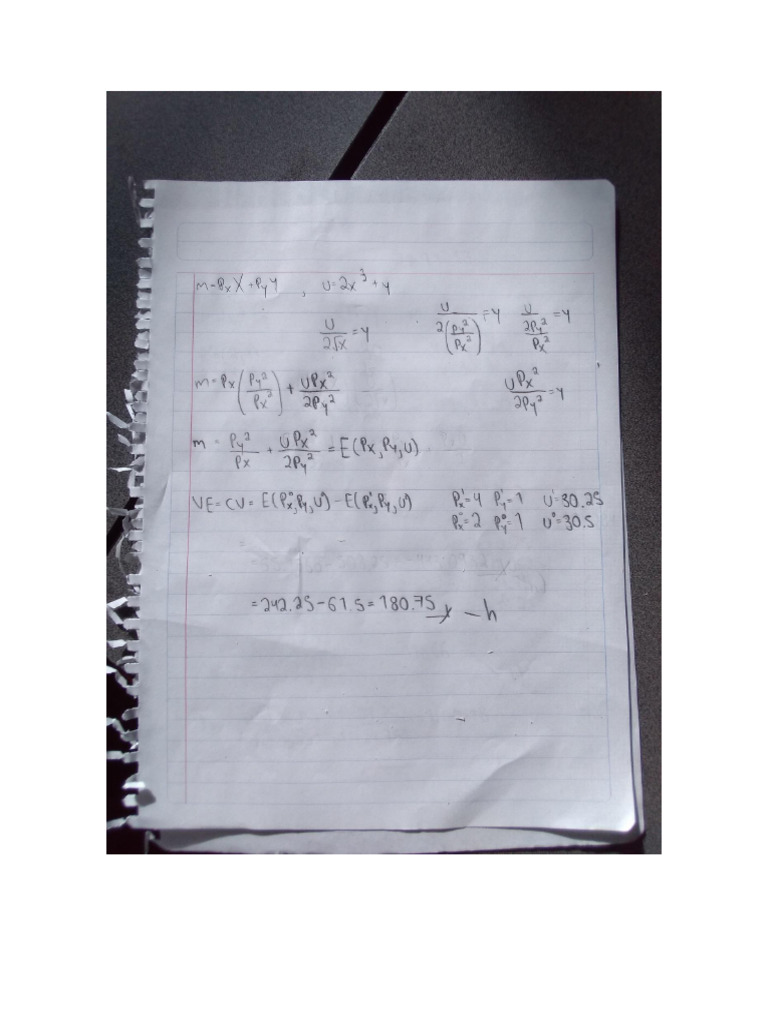 m=PxX+PyY , U=2x³+y
U/(2√x)=y U/(2(Py²/Px²))=y U/(2Py²/Px²)=y
m=Px(Py²/Px²)+UPx²/2Py² UPx²/2Py²=y
m=Py²/Px+UPx²/2Py²=E(Px,Py,U)
VE=CV=E(Px°,Py,U')-E(Px',Py,U') Px'=4 Py'=1 U'=30.25
Px°=2 Py°=1 U°=30.5
=242.25-61.5=180.75